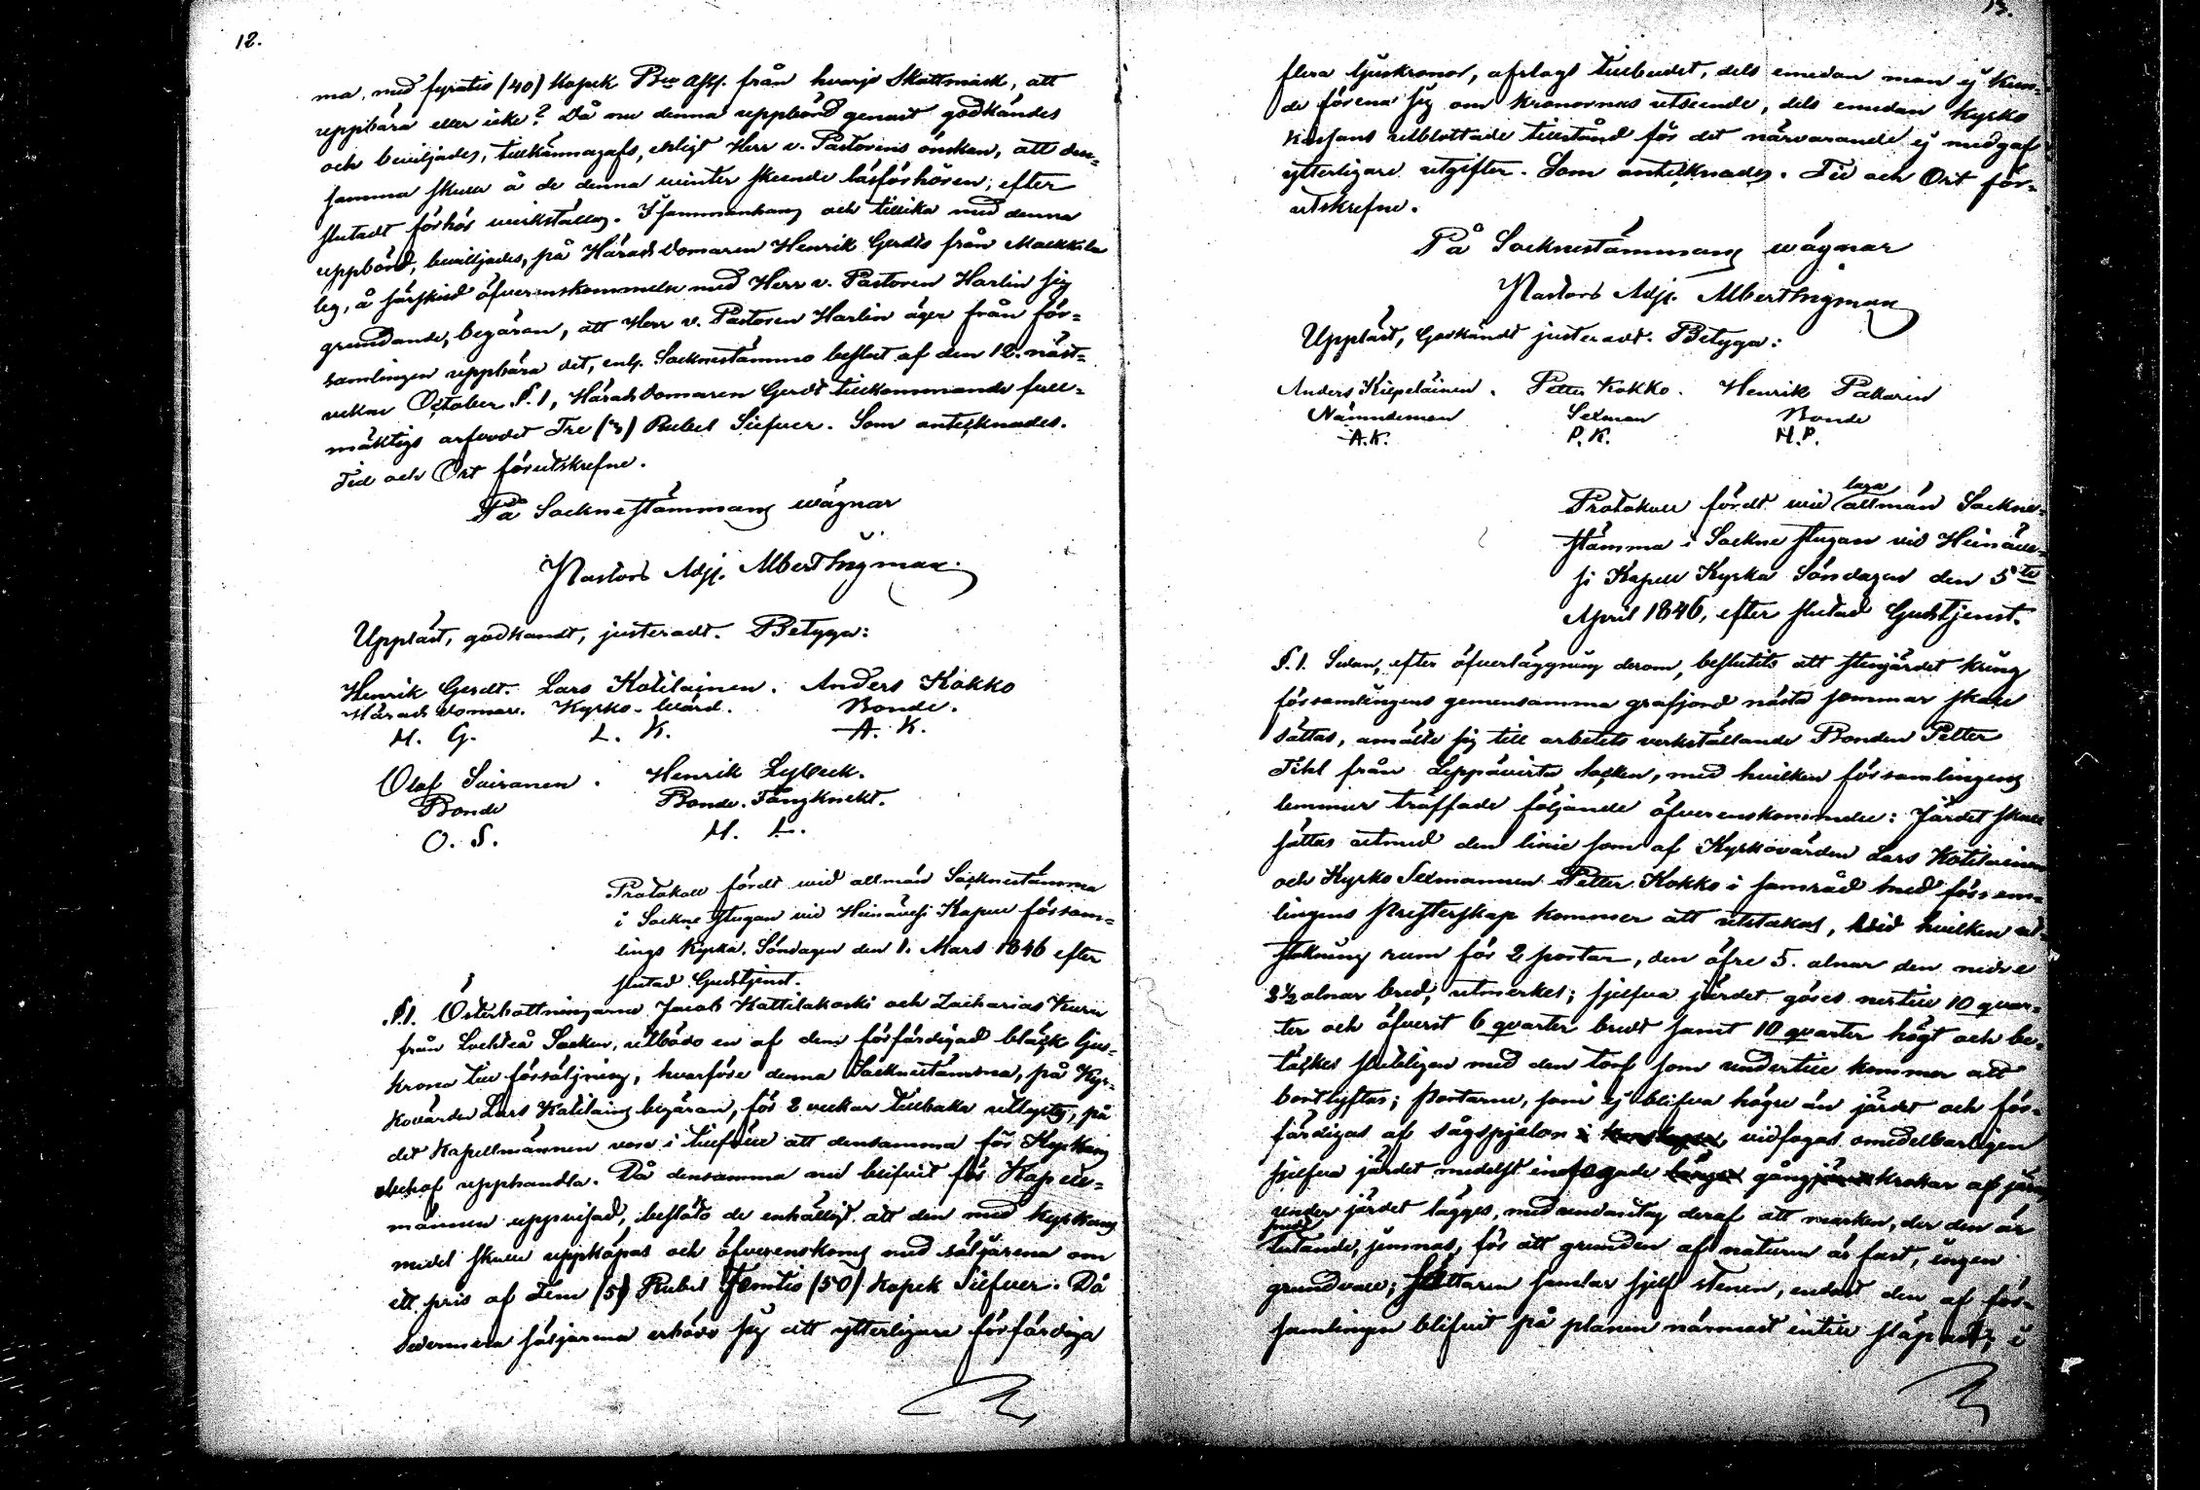 12.
ma, med fyratio (40) Kopek Bco Assg. från hvarje Skattmark, att
uppbära eller icke? Då nu denna uppbörd genast godkändes
och beviljades, tillkännagafs, enligt Herr v. Pastorens önskan, att den-
samma skulle å de denna winter skeende läsförhören, efter
slutadt förhör werkställas. I sammanhang och tillika med denna
uppbörd, beviljades, på Häradsdomaren Henrik Gerdts från
leg, å särskild öfverenskommelse med Herr v. Pastoren Harlin sig
grundande, begäran, att Herr v. Pastoren Harlin äger från för-
samlingen uppbära det, enl. Socknestämmo beslut af den 12. näst-
vekne October §. 1, Häradsdomaren Gerdt tillkommande full-
mäktigs arfvodet Tre (3) Rubel Silfver. Som antecknades.
Tid och Ort förutskrefne.
På Socknestämmans wägnar
Pastors Adj. Albert Ingman.
Uppläst, godkändt, justeradt. Betyga:
Henrik Gerdt. Lars Kolilainen. Anders Kokko
Häradsdomare. Kyrko-Värd. Bonde.
H. G. L. K. A. K.
Olof Sairanen. Henrik Lybeck.
Bonde Bonde. Fångknekt.
O. S. H. L.
Protokoll fördt wid allmän Socknestämma
i Sockne stugan vid Heinävesi Kapell försam-
lings Kyrka, Söndagen den 1. Mars 1846 efter
slutad Gudstjenst.
§.1. Österbottningarne Jacob Kattilakoski och Zacharias
från Lochteå Socken, utbödo en af dem förfärdigad bläck ljus-
krona till försäljning, hvarföre denna Socknestämma, på Kyr-
kovärden Lars Kolilains begäran, för 2 veckor tillbaka utlysts, på
det Kapellmännen vore i tillfälle att densamma för Kyrkans
behof upphandla. Då densamma nu blifvit för Kapell-
männen uppvisad, beslöto de enhälligt att den med kyrkans
medel skulle uppköpas och öfverenskoms med säljarena om
ett pris af Fem (5) Rubel Femtio (50) Kopek Silfver. Då
sedermera säljarena erbödo sig att ytterligare förfärdiga
13.
flera ljuskronor, afslogs tillbudet, dels emedan man ej kun-
de förena sig om kronornas utseende, dels emedan Kyrko
Kassans utblottade tillstånd för det närvarande ej medgaf
ytterligare utgifter. Som antecknades. Tid och Ort för-
utskrefne.
På Socknestämmans wägnar
Pastors Adj. Albert Ingman
Uppläst, Godkändt justeradt. Betyga:
Anders Kiepeläinen. Petter Kokko. Henrik Pakarin
Nämndeman Sexman Bonde
A.K. P.K. H.P.
Protokoll fördt wid laga allmän Sockne-
stämma i Sockne stugan vid Heinäve-
si Kapell Kyrka Söndagen den 5te
April 1846, efter slutad Gudstjenst.
§.1. Sedan, efter öfverläggning derom, beslutits att stengärdet kring
församlingens gemensamma grafjord nästa sommar skall
sättas, anmälte sig till arbetets verkställande Bonden Petter
från Leppävirta Socken, med hvilken församlingens
lemmar träffade följande öfverenskommelse: Järdet skall
sättas utmed den linie som af Kyrkovärden Lars Kolilainen
och Kyrko Sexmannen Petter Kokko i samråd med försam-
lingens Presterskap kommer att utstakas, wid hvilken ut-
stakning rum för 2 portar, den öfre 5. alnar den nedre
3½ alnar bred, utmerkes; sjelfva järdet göres nertill 10 quar-
ter och öfverst 6 quarter bredt samt 10 quarter högt och be-
täckes med den torf som undertill kommer att
bortlyftas; Portarne, som ej blifva högre än järdet och för-
färdigas af sågspjelor vidfogas omedelbarligen
sjelfva järdet medelst infogade gångjärns krokar af järn
under järdet lägges, med undantag deraf att marken, der den är
slutande, jemnas, för att grunden af naturen är fast, ingen
grundvall; Sättaren samlar sjelf stenen, endast den af för-
samlingen blifvit på planen närmast intill släpad, i